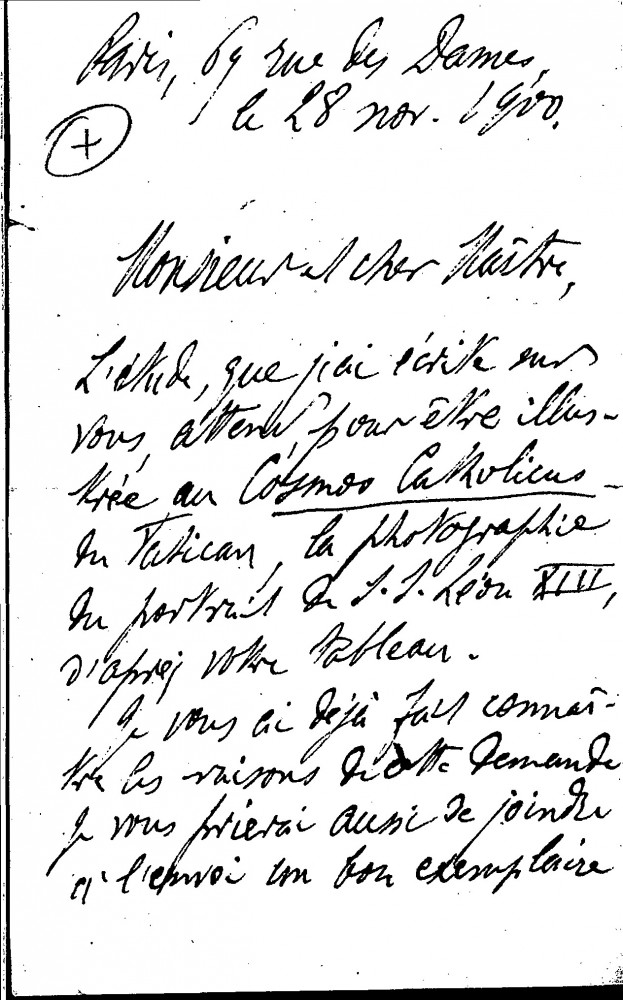 Paris, 69 rue des Dames,
le 28 nov. 1900.
+
Monsieur et cher Maître,
L'étude, que j'ai écrite sur
vous, attend, pour être illus-
trée au Cosmos Catholicus
du Vatican, la photographie
du portrait de S. S. Léon XIII,
d'après votre tableau.
Je vous ai déjà fait connaî-
tre les raisons de cette demande
Je vous prierai aussi de joindre
à l'envoi un bon exemplaire